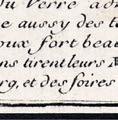 Du Verre adm
e aussy des to
oux fort beau
ns tirent leurs
rg, et des foires